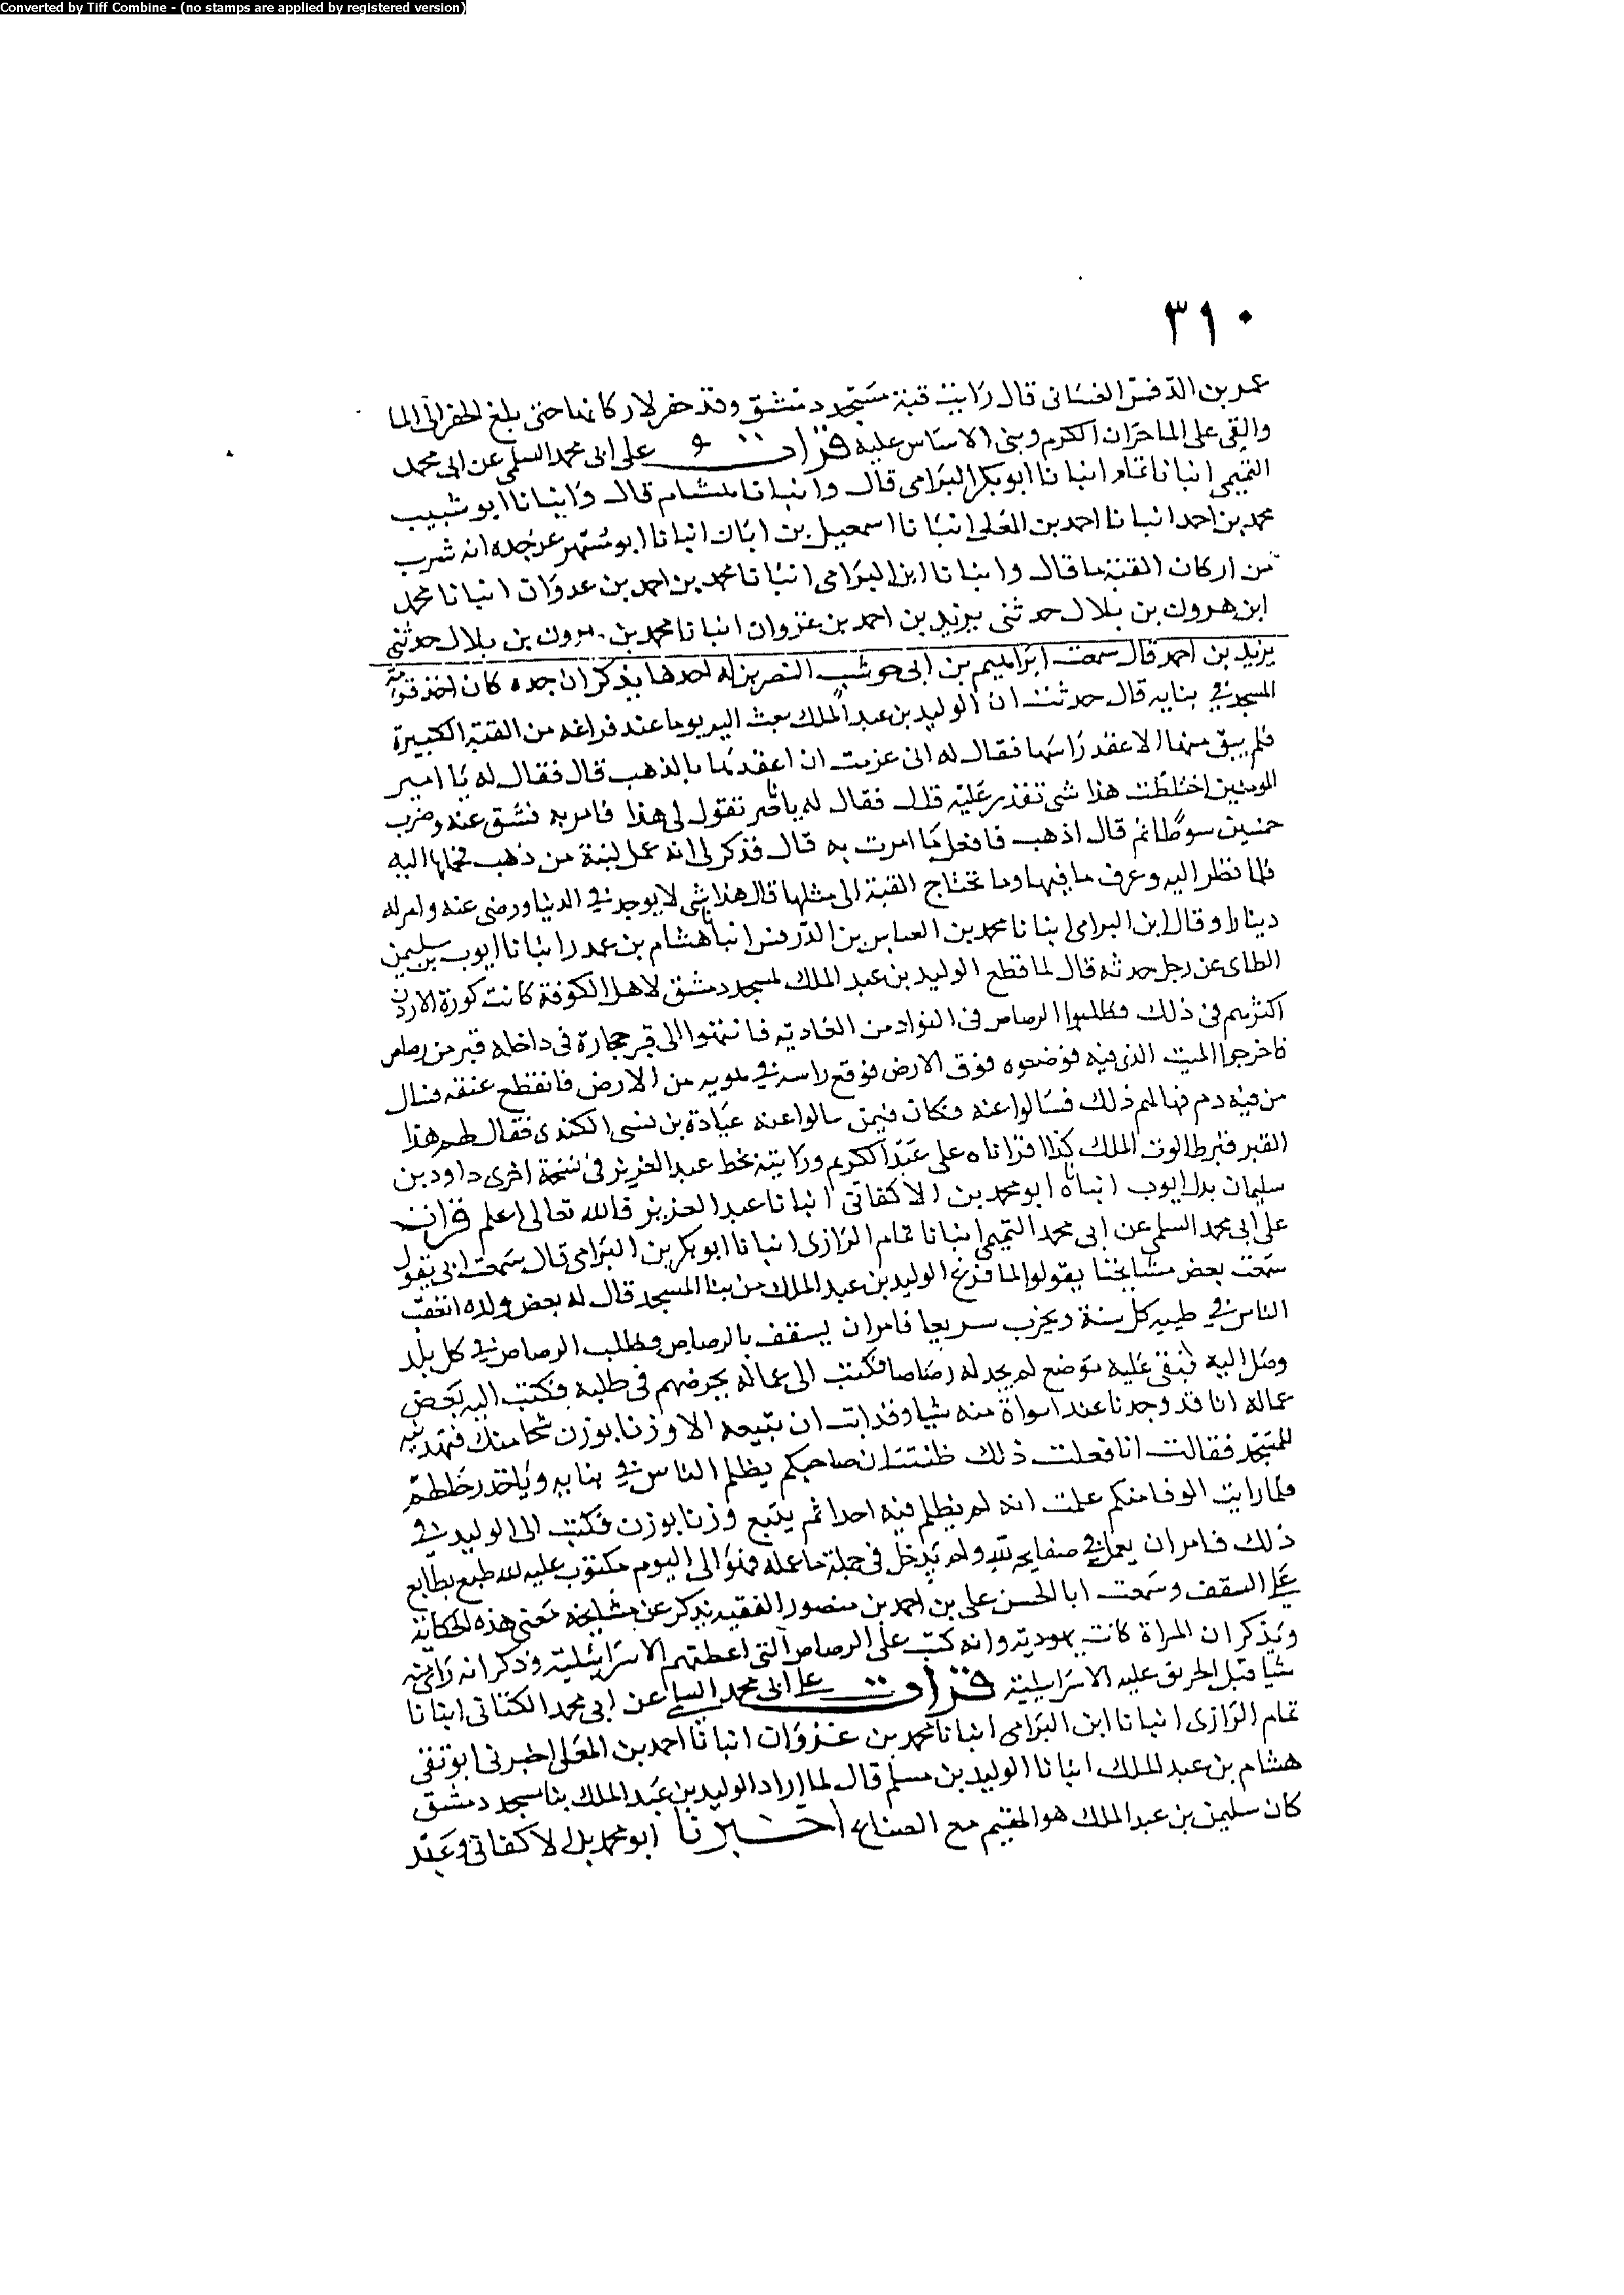 Converted by Tiff Combine - (no stamps are applied by registered version)
٣١٠
عمر بن الدفس الغسانى قال رايت قبة مسجد دمشق وقد حفر لاركانها حتى بلغ الحفر الى الما
والقى على الما جران الكرم وبنى الاساس عليه قرات على ابى محمد السلمى عن ابى محمد
التميمى انبانا تمام انبانا ابو بكر البرامى قال وانبانا هشام قال وانبانا ابو شبيب
محمد بن احمد انبانا احمد بن المعلى انبانا اسمعيل بن ابان انبانا ابو مسهر عن جده انه شرب
من اركان القبة ما قال وانبانا ابن البرامى انبانا محمد بن احمد بن عدوان انبانا محمد
ابن هرون بن بلال حدثنى يزيد بن احمد بن غزوان انبانا محمد بن هرون بن بلال حدثنى
يزيد بن احمد قال سمعت ابراهيم بن ابى حوشب النصرى يذكر ان جده كان اخذ قومة
المسجد فى بنايه قال حدثت ان الوليد بن عبد الملك بعث اليه يوما عند فراغه من القبة الكبيرة
فلم يبق منها الا عقد راسها فقال له انى عزمت ان اعقدها بالذهب قال فقال له يا امير
المومنين اختلطت هذا شى تقدر عليه قال فقال له يا تقول لى هذا فامر به فشق عنه وضرب
خمسين سوطا ثم قال اذهب فافعل ما امرت به قال فذكر لى انه عمل لبنة من ذهب فحملها اليه
فلما نظر اليه وعرف ما فيها وما تحتاج القبة الى مثلها قال هذا شى لا يوجد فى الدنيا ورضى عنه وامر له
دينارا وقال ابن البرامى انبانا محمد بن العباس بن الدرفس انبا هشام بن عمار انبانا ايوب بن سليمن
الطاى عن رجل حدثه قال لما قطع الوليد بن عبد الملك لمسجد دمشق لاهل الكوفة كانت كورة الاردن
اكثرهم فى ذلك فطلبوا الرصاص فى النواد من العادية فانتهوا الى قبر حجارة فى داخله قبر من رصاص
فاخرجوا الميت الذى فيه فوضعوه فوق الارض فوقع راسه فى هويه من الارض فانقطع عنقه فسال
من فيه دم فهالهم ذلك فسالوا عنه فكان فيمن سالوا عنه عبادة بن نسى الكندى فقال لهم هذا
القبر قبر طالوت الملك كذا قراناه على عبد الكريم ورايته بخط عبد العزيز فى نسخة اخرى داود بن
سليمان بدل ايوب انباناه ابو محمد بن الاكفانى انبانا عبد العزيز فالله تعالى اعلم قرات
على ابى محمد السلمى عن ابى محمد التميمى انبانا تمام الرازى انبانا ابو بكر بن البرامى قال سمعت ابى يقول
سمعت بعض مشايخنا يقولوا لما فرغ الوليد بن عبد الملك من بنا المسجد قال له بعض ولده اتعبت
الناس فى طينه كل سنة ويخرب سريعا فامر ان يسقف بالرصاص وطلب الرصاص فى كل بلد
وصل اليه فبقى عليه موضع لم يجد له رصاصا فكتب الى عماله يحرضهم فى طلبه فكتب اليه بعض
عماله انا قد وجدنا عند امراة منه شيا وقد ابت ان تبيعه الا وزنا بوزن
للمسجد فقالت انا فعلت ذلك ظننت ان صاحبكم يظلم الناس فى بنايه وياخذ رخلهم
فلما رايت الوفا منكم علمت انه لم يظلم فيه احدا ثم يتبع وزنا بوزن فكتب الى الوليد فى
ذلك فامر ان يعمل فى صفايحه لله ولم يدخل فى جملة ما عمله فهو الى اليوم مكتوب عليه لله طبع بطابع
على السقف وسمعت ابا الحسن على بن احمد بن منصور الفقيه يذكر عن مشايخه معنى هذه الحكاية
ويذكر ان المراة كانت يهودية وانه كتب على الرصاص التى اعطتهم الاسرائيلية وذكر انه راى منه
شيا قبل الحريق عليه الاسرايلية قرات على ابى محمد السلمى عن ابى محمد الكتانى انبانا
تمام الرازى انبانا ابن البرامى انبانا محمد بن غزوان انبانا احمد بن المعلى اخبرنى ابو تقى
هشام بن عبد الملك انبانا الوليد بن مسلم قال لما اراد الوليد بن عبد الملك بنا مسجد دمشق
كان سليمن بن عبد الملك هو المقيم مع الصناع اخبرنا ابو محمد بن الاكفانى وعبد